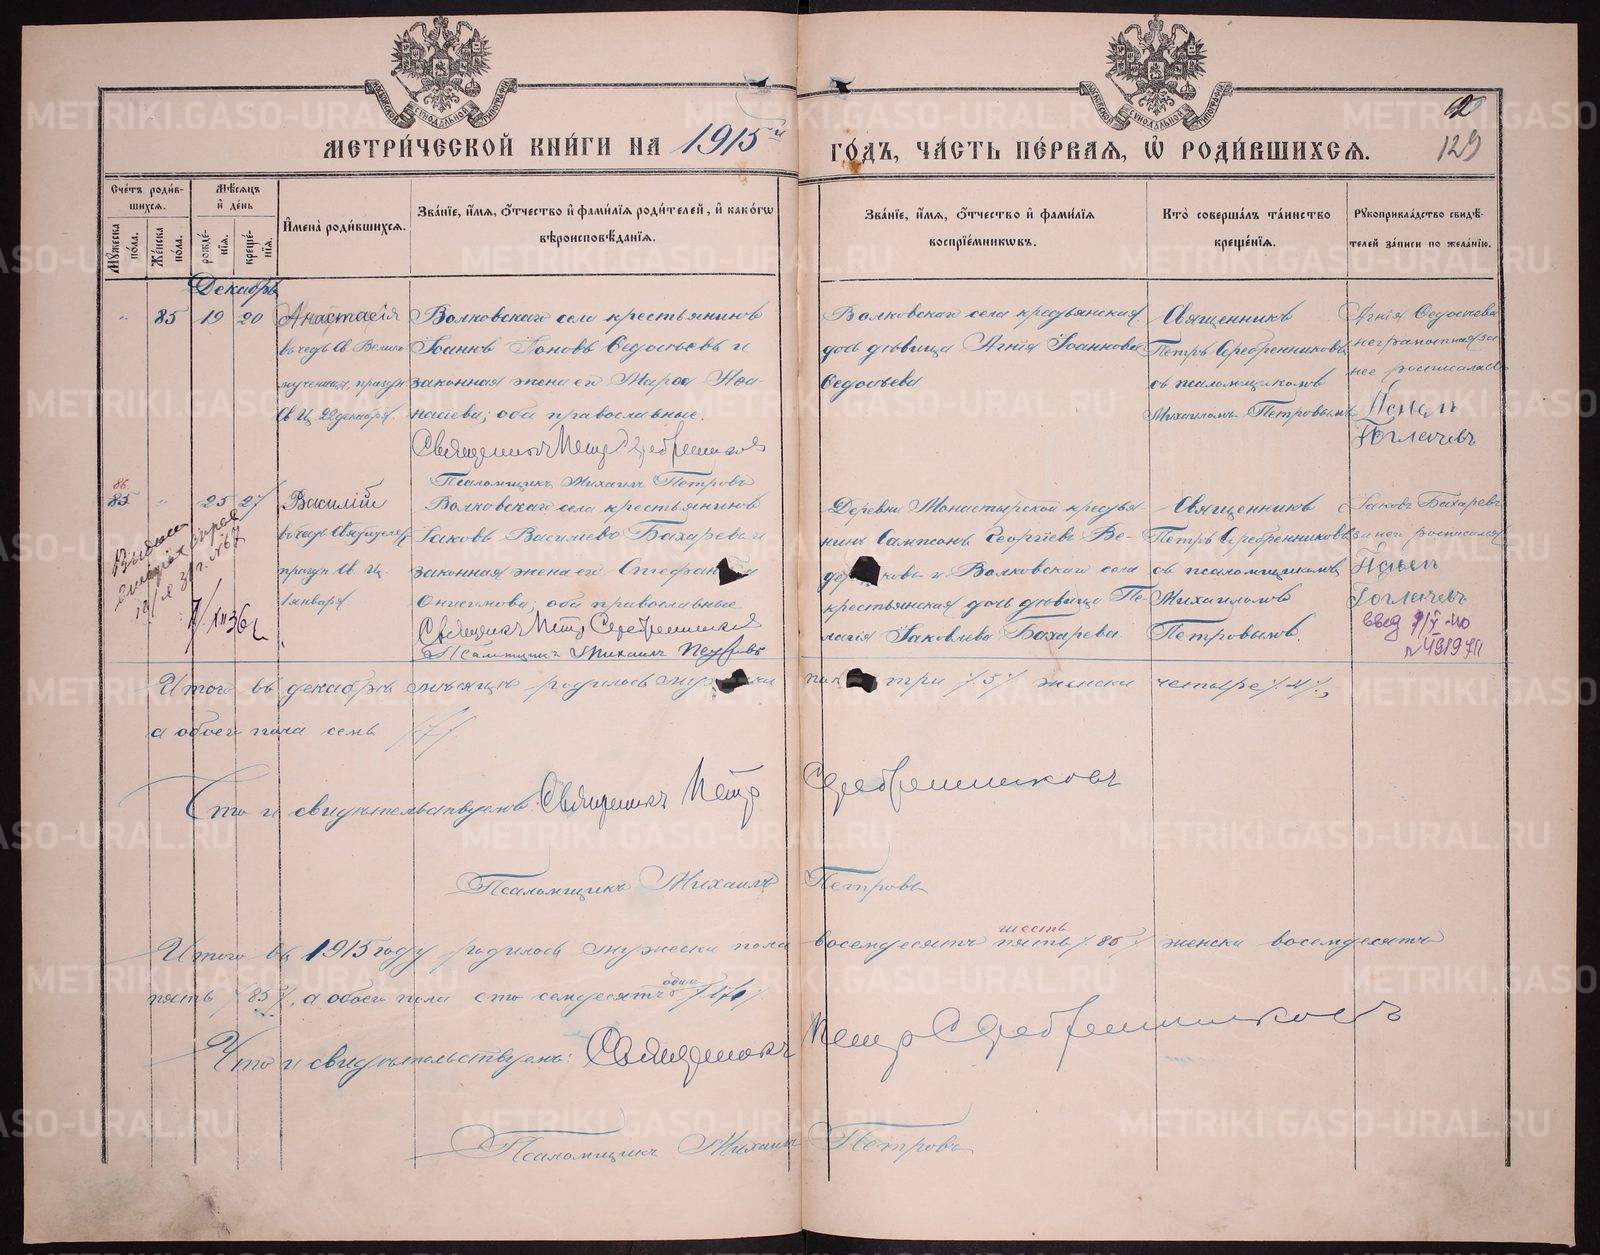 МЕТРИ́ЧЕСКОЙ КНИ́ГИ НА 1915й ГО́ДЪ, ЧА́СТЬ ПЕ́РВАЯ, Ѡ РОДИ́ВШИХСЯ.
129
Сче́тъ роди́в-
шихся.
Мꙋ́жеска по́ла.
Же́нска по́ла.
Мѣ́сяцъ и҆ де́нь
рожде́-нїя.
креще́-нїя.
И҆мена̀ роди́вшихся.
Зва́нїе, и҆́мя, ѻ҆́тчество и҆ фами́лїя роди́телей, и҆ како́гѡ
вѣроисповѣ́данїя.
Зва́нїе, и҆́мя, ѻ҆́тчество и҆ фами́лїя
воспрїе́мникѡвъ.
Кто̀ соверша́лъ та́инство
креще́нїя.
Рꙋкоприкла́дство свидѣ́-
телей за́писи по жела́нїю.
Декабрь
" 85 19 20
Анастасія
въ честь Св. Велико
мученицы, празdн
Св. Ц. 22 декабря.
Волковскаго села крестьянинъ
Іоаннъ Іоновъ Ѳедосѣевъ и
законная жена его Марѳа Аѳа-
насіева; оба православные.
Священникъ Петръ Серебренниковъ
Псаломщикъ Михаилъ Петровъ
Волковскаго села крестьянская
дочь дѣвица Агнія Іоаннова
Ѳедосѣева
Священникъ
Петръ Серебренниковъ
съ псаломщикомъ
Михаиломъ Петровымъ
Агнія Ѳедосѣева
неграмотная за
нее росписалась
86
85 " 25 27
Василій
въ честь Святителя
праздн. Св. Ц.
1 января
Волковскаго села крестьянинъ
Іаковъ Василіевъ Бахаревъ и
законная жена его Стефанида
Онисимова; оба православные
Священникъ Петръ Серебренниковъ
Псаломщикъ Михаилъ Петровъ
Деревни Монастырской крестья
нинъ Сампсонъ Георгіевъ Ве-
и Волковскаго села
крестьянская дочь дѣвица Пе-
лагія Іаковлева Бахарева.
Священникъ
Петръ Серебренниковъ
съ псаломщикомъ
Михаиломъ
Петровымъ.
Іаковъ Бахаревъ
за него росписался
Итого въ декабрѣ мѣсяцѣ родилось мужеска пола три /3/ женска четыре /4/,
а обоего пола семь /7/
Что и свидѣтельствуемъ: Священникъ Петръ Серебренниковъ
Псаломщикъ Михаилъ Петровъ
шесть
Итого въ 1915 году родилось мужеска пола восемдесятъ пять /86/ женска восемдесятъ
одинъ
пять /85/, а обоего пола сто семдесятъ /171/
Что и свидѣтельствуемъ: Священникъ Петръ Серебренниковъ
Псаломщикъ Михаилъ Петровъ
METRIKI.GASO-URAL.RU